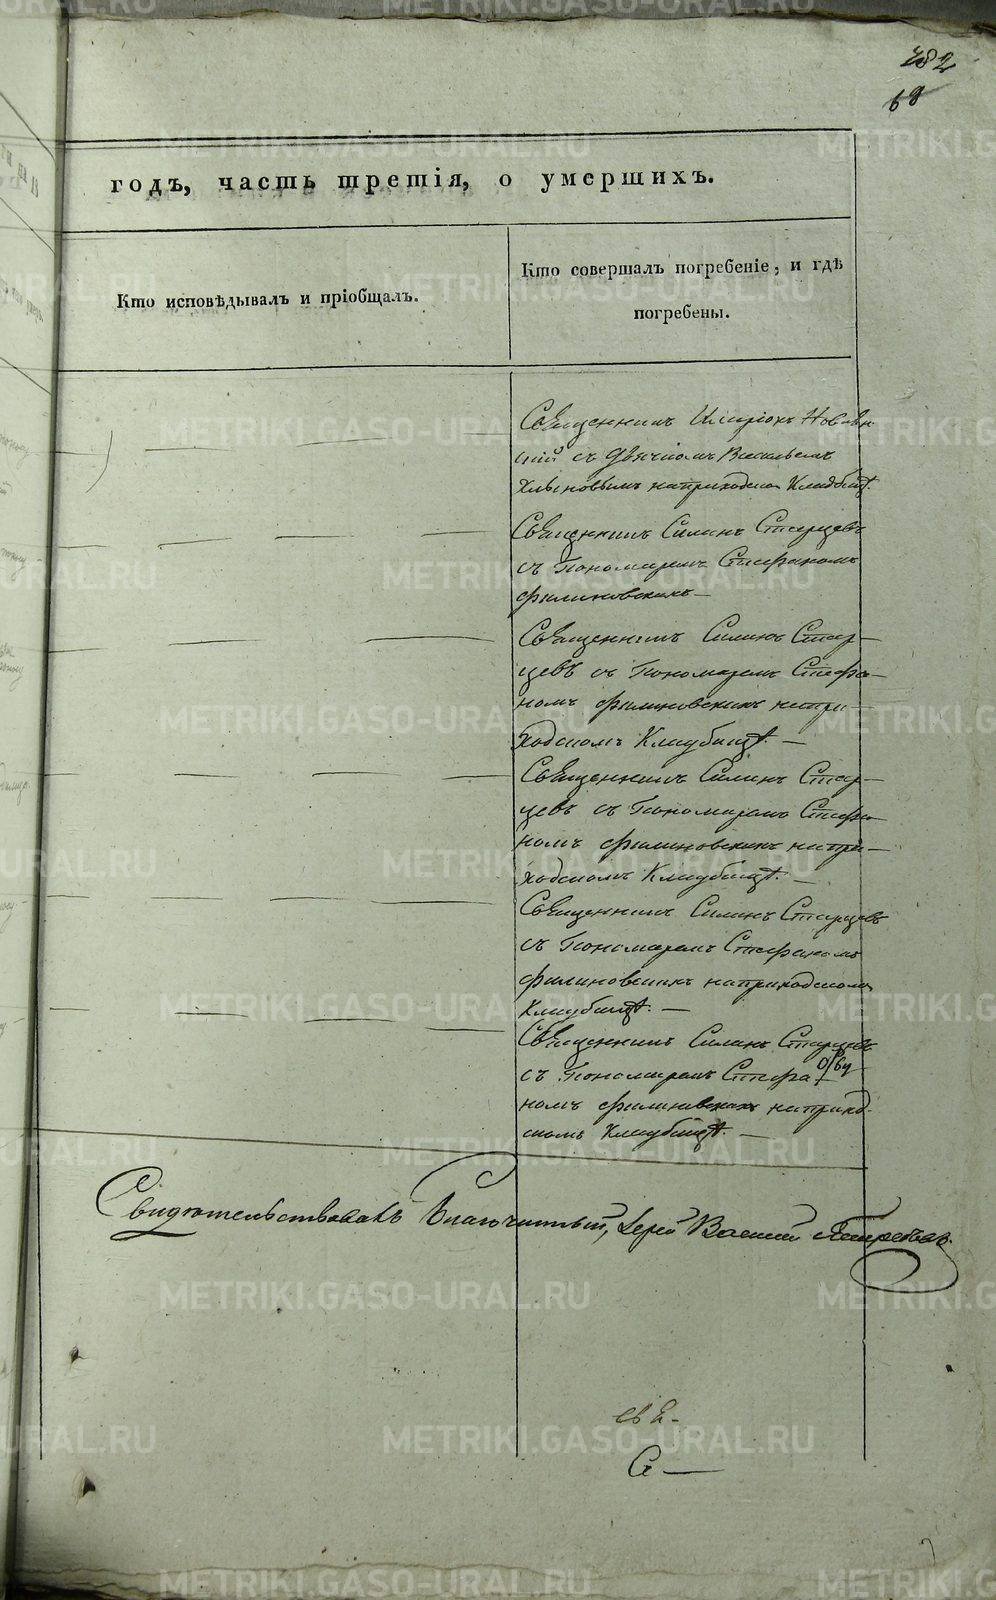 282
68
годъ, часть третія, о умершихъ.
Кто исповѣдывалъ и пріобщалъ.
Кто совершалъ погребеніе, и гдѣ
погребены.
Священникъ Иларіонъ
съ Дьячкомъ Васильемъ
Хлыновымъ на приходском Кладбищѣ.
Священникъ Силинъ Старцевъ
съ Пономаремъ Стефаномъ
Филиновскимъ —
Священникъ Силинъ Стар—
цевъ съ Пономаремъ Стефа—
номъ Филиновскимъ на при—
ходскомъ Кладбищѣ. —
Священникъ Силинъ Стар—
цевъ съ Пономаремъ Стефа—
номъ Филиновскимъ на при—
ходскомъ Кладбищѣ. —
Священникъ Силинъ Старцевъ
съ Пономаремъ Стефаномъ
Филиновскимъ на приходском
Кладбищѣ. —
Священникъ Силинъ Старцевъ
съ Пономаремъ Стефа—
номъ Филиновскимъ на приход-
скомъ Кладбищѣ. —
Свидѣтельствовалъ Благочинный, Іерей Василій
METRIKI.GASO-URAL.RU